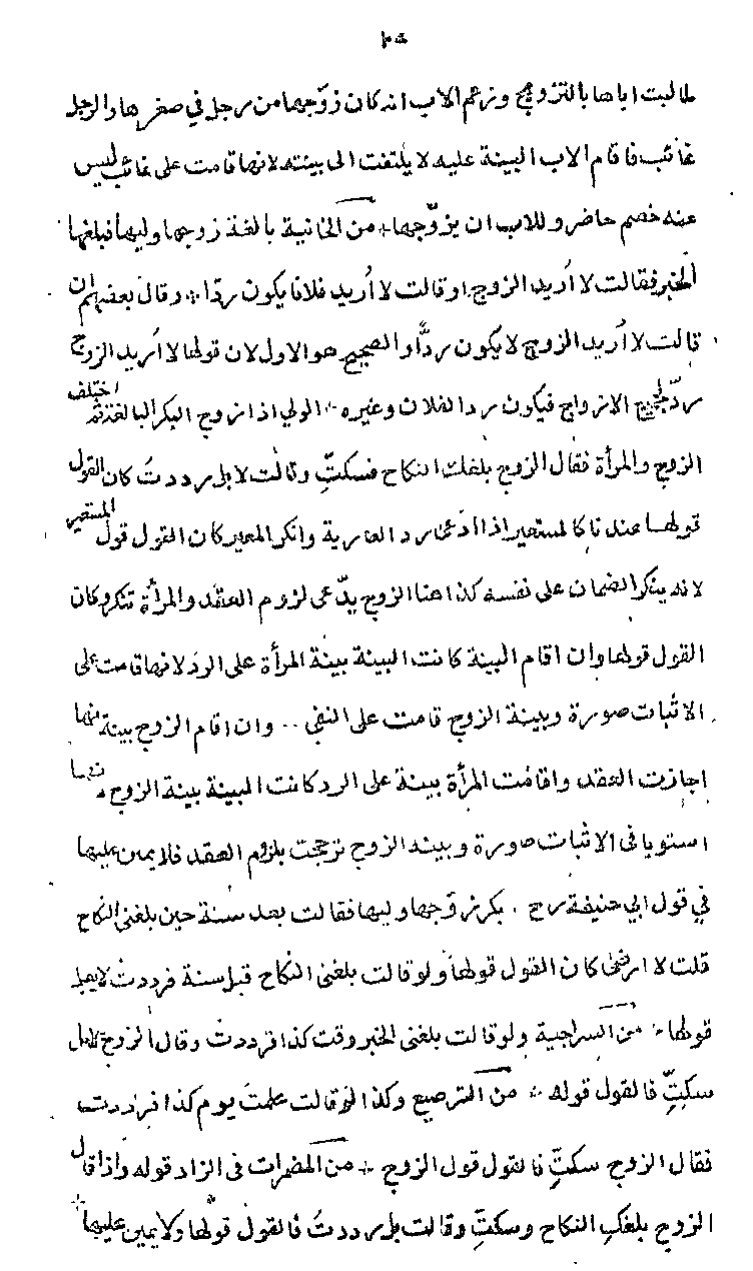 طالبت اباها بالتزويج وزعم الاب انه كان زوّجها من رجل في صغرها والرجل
غائب فاقام الاب البينة عليه لا يلتفت الى بينته لانها قامت على غائب ليس
عنه خصم حاضر وللاب ان يزوّجها من الخانية بالغة زوجها وليها فبلغها
الخبر فقالت لا أريد الزوج او قالت لا أريد فلانا يكون ردّا وقال بعضهم ان
قالت لا أريد الزوج لا يكون ردًّا والصحيح هو الاول لان قولها لا أريد الزوج
ردّ لجميع الازواج فيكون ردا لفلان وغيره الولي اذا زوج البكر البالغة ثم اختلف
الزوج والمرأة فقال الزوج بلغك النكاح فسكتِّ وقالت لا بل رددتُ كان القول
قولها عندنا كالمستعير اذا ادّعى رد العارية وانكر المعير كان القول قول المستعير
لانه ينكر الضمان على نفسه كذا هنا الزوج يدّعى لزوم العقد والمرأة تنكر وكان
القول قولها وان اقام البينة كانت البينة بينة المرأة على الرد لانها قامت على
الاثبات صورة وبينة الزوج قامت على النفى وان اقام الزوج بينة انها
اجازت العقد واقامت المرأة بينة على الرد كانت البينة بينة الزوج لانهما
استويا فى الاثبات صورة وبينه الزوج ترجحت بلزوم العقد فلا يمين عليها
في قول ابي حنيفة رح بكر زوّجها وليها فقالت بعد سنة حين بلغنى النكاح
قلت لا ارضى كان القول قولها ولو قالت بلغنى النكاح قبل سنة فرددت لا يقبل
قولها من السراجية ولو قالت بلغنى الخبر وقت كذا فرددتُ وقال الزوج لا بل
سكتِّ فالقول قوله من الترصيع وكذا لو قالت علمت يوم كذا فرددت
فقال الزوج سكتِّ فالقول قول الزوج من المضمرات فى الزاد قوله واذا قال
الزوج بلغكِ النكاح وسكتِّ وقالت بل رددتُ فالقول قولها ولا يمين عليها